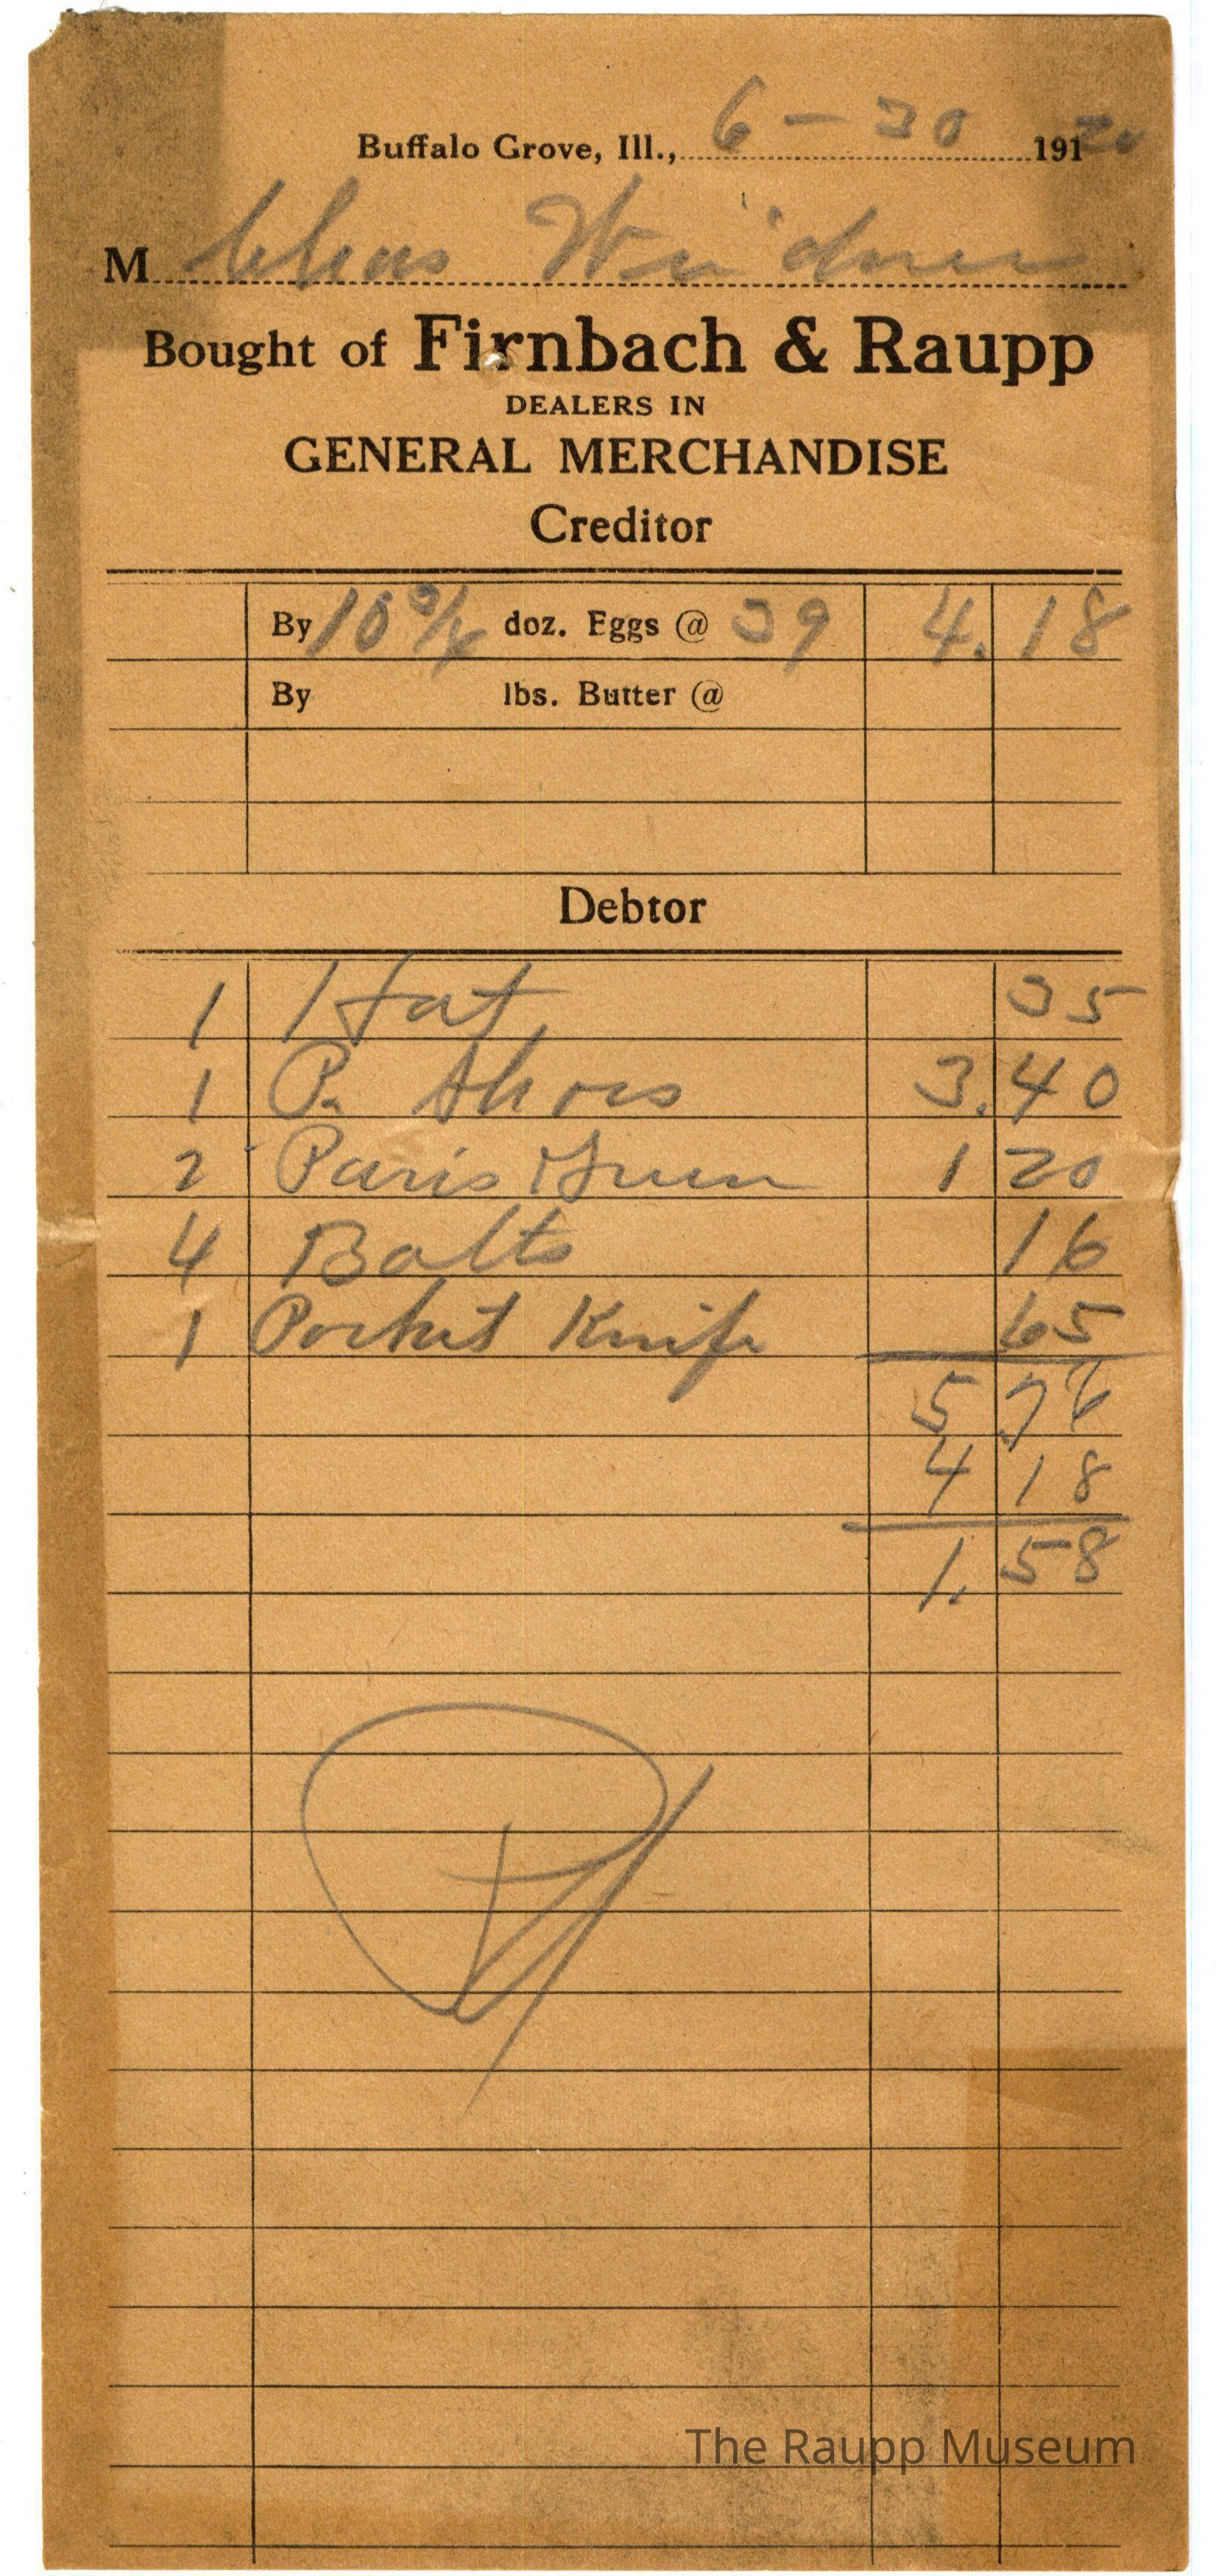 Buffalo Grove, Ill., 6 - 30 191 20
M Chas Weidner
Bought of Firnbach & Raupp
DEALERS IN
GENERAL MERCHANDISE
Creditor
By 10 3/4 doz. Eggs @ 39 4.18
By lbs. Butter @
Debtor
1 Hat 35
1 P. Shoes 3.40
2 Paris Green 1 20
4 Bolts 16
1 Pocket Knife 65
5.76
4 18
1.58
The Raupp Museum